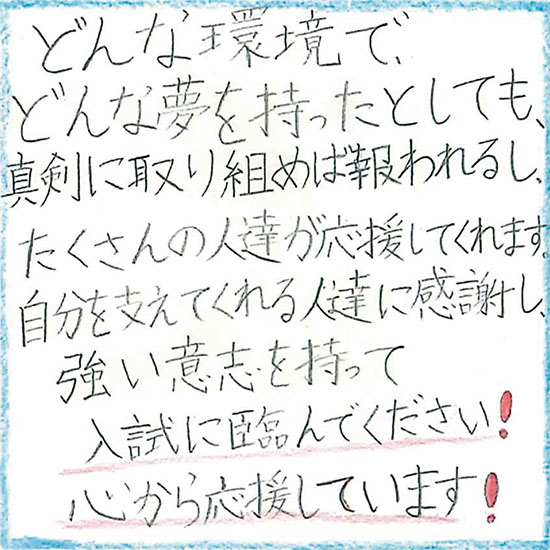 どんな環境で、
どんな夢を持ったとしても、
真剣に取り組めば報われるし、
たくさんの人達が応援してくれます。
自分を支えてくれる人達に感謝し、
強い意志を持って
入試に臨んでください!
心から応援しています!